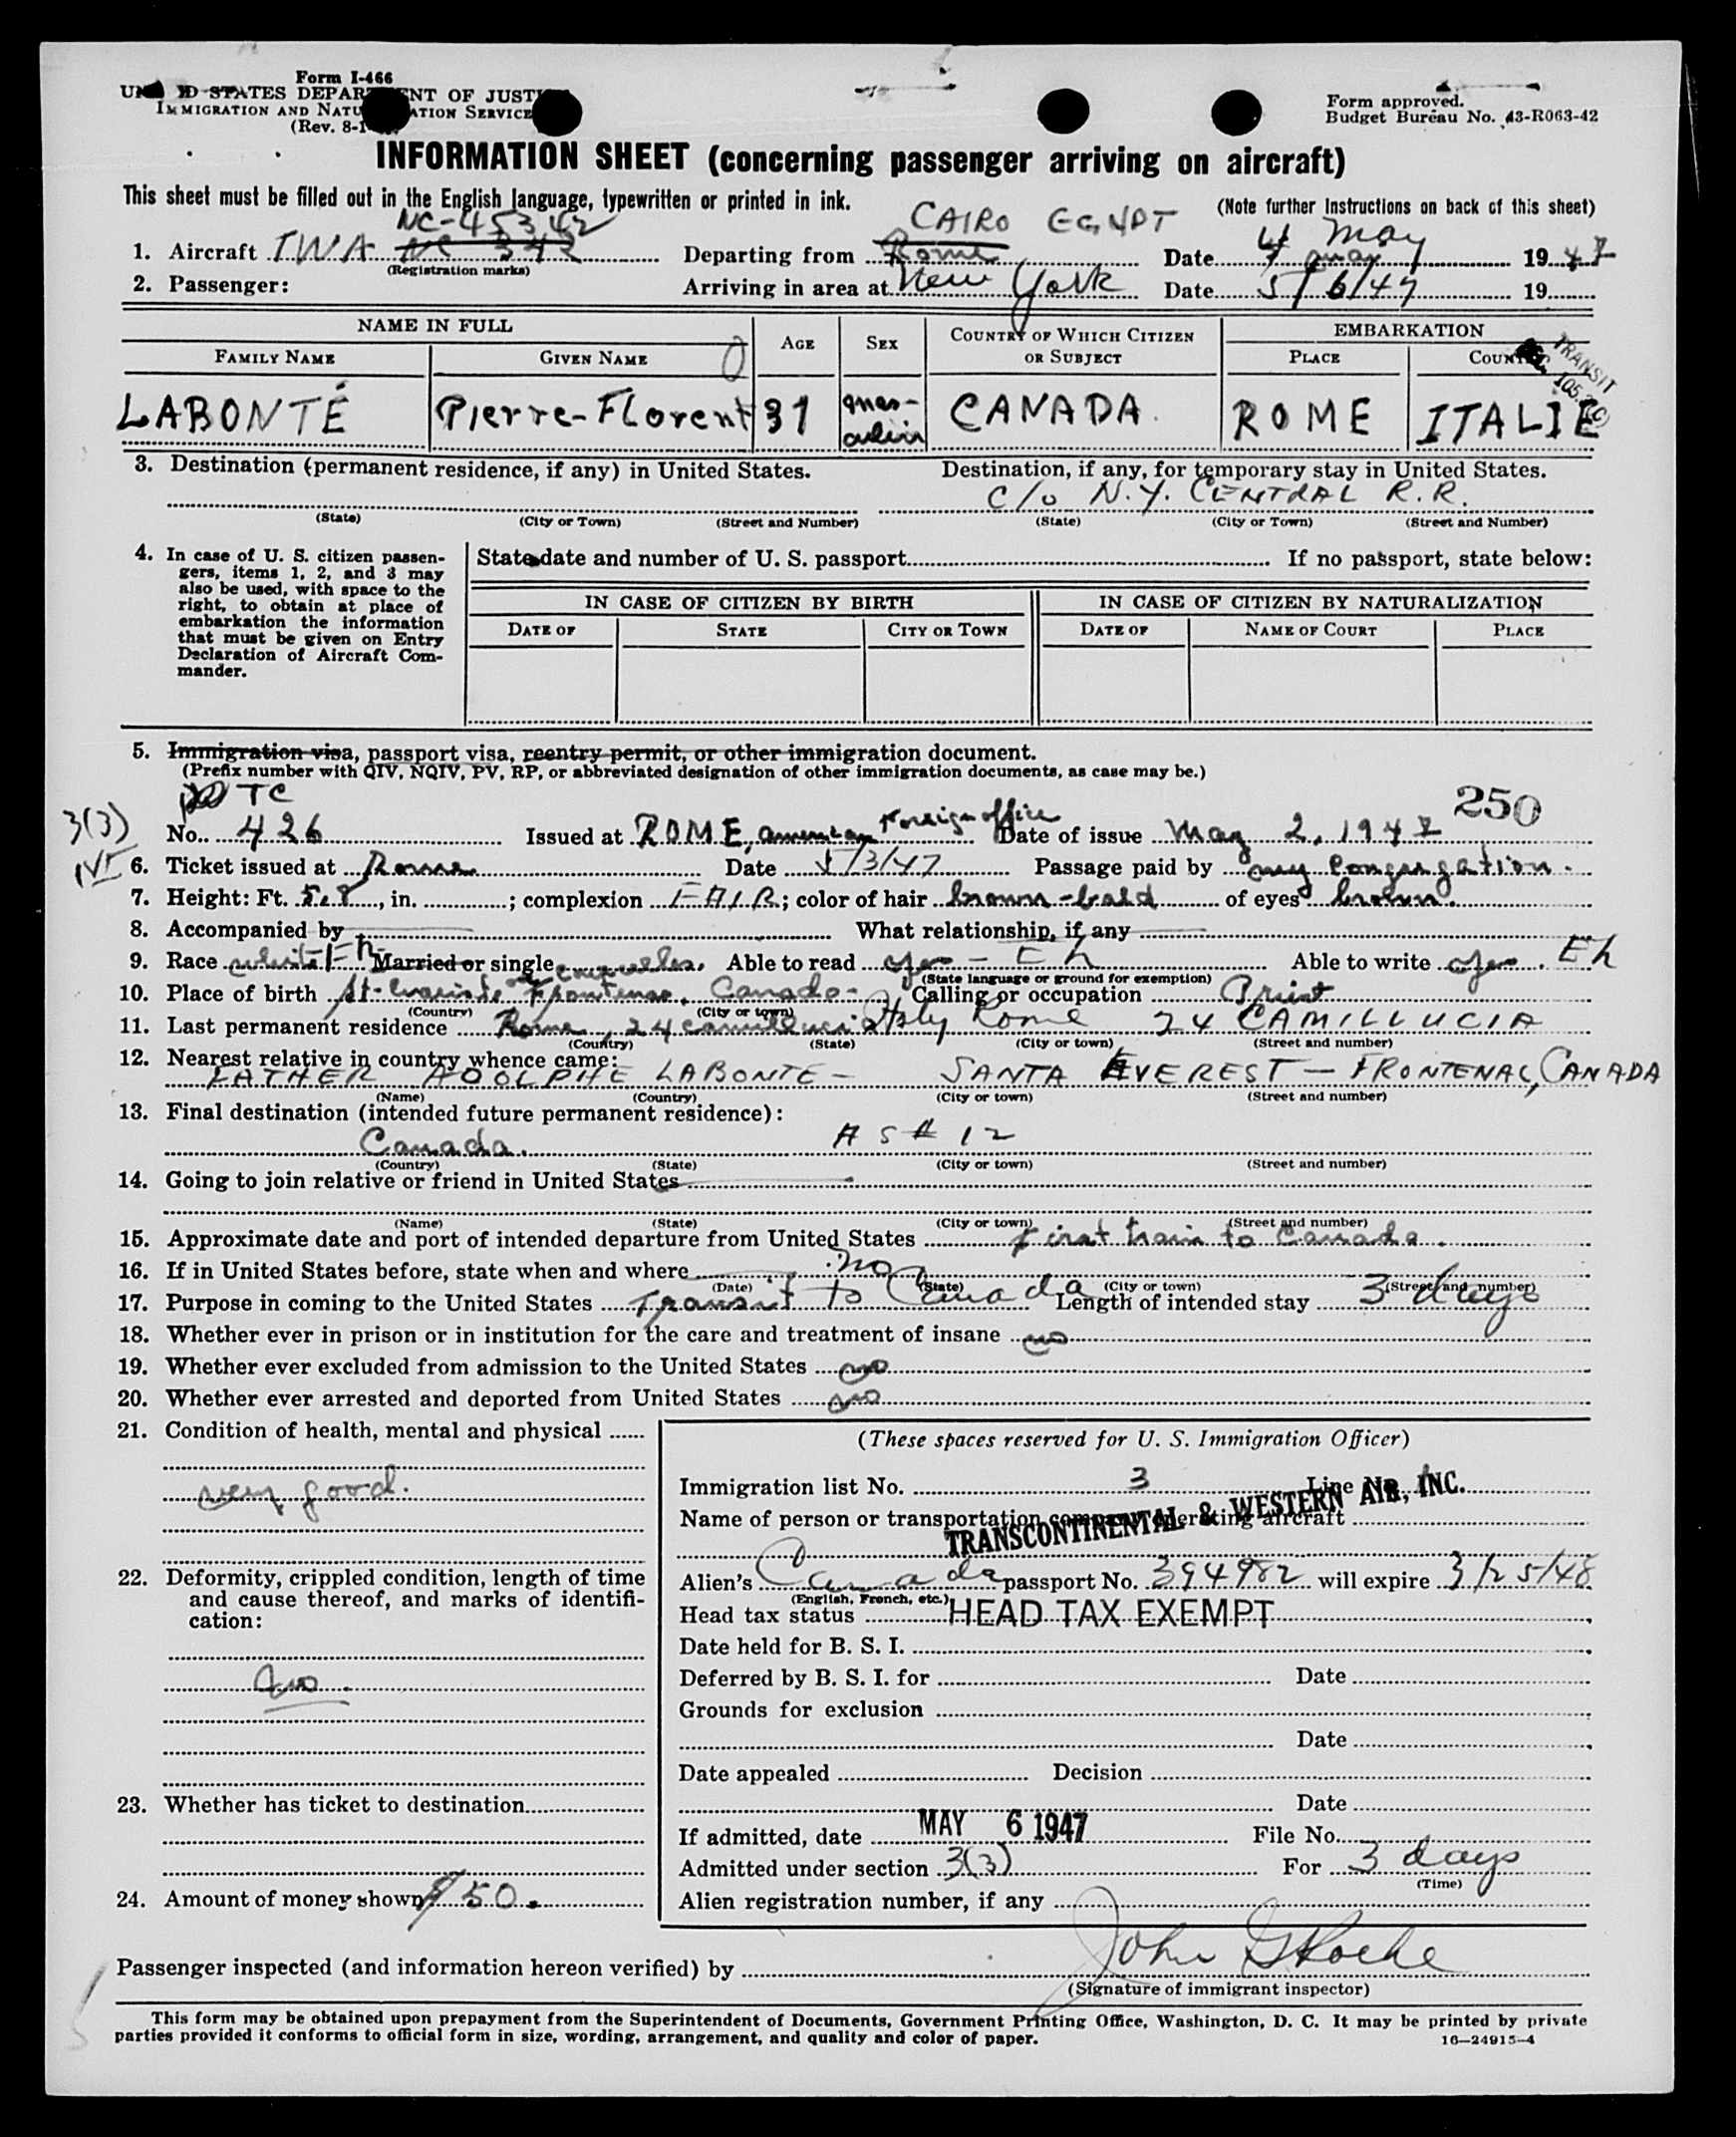 Form I-466
UNITED STATES DEPARTMENT OF JUSTICE
IMMIGRATION AND NATURALIZATION SERVICE
(Rev. 8-1
Form approved.
Budget Bureau No. 43-R063-42
INFORMATION SHEET (concerning passenger arriving on aircraft)
This sheet must be filled out in the English language, typewritten or printed in ink.
(Note further instructions on back of this sheet)
NC-45342 CAIRO EGYPT 4 May
1. Aircraft TWA NC 342 Departing from Rome Date 4 may 1947
(Registration marks)
2. Passenger: Arriving in area at New York Date 5/6/47 19
NAME IN FULL AGE SEX COUNTRY OF WHICH CITIZEN OR SUBJECT EMBARKATION
FAMILY NAME GIVEN NAME PLACE COUNTRY
TRANSIT
LABONTÉ Pierre-Florent 31 mas-culin CANADA. ROME ITALIE
3. Destination (permanent residence, if any) in United States. Destination, if any, for temporary stay in United States.
c/o N.Y. CENTRAL R.R.
(State) (City or Town) (Street and Number) (State) (City or Town) (Street and Number)
4. In case of U. S. citizen passen-
gers, items 1, 2, and 3 may
also be used, with space to the
right, to obtain at place of
embarkation the information
that must be given on Entry
Declaration of Aircraft Com-
mander.
State date and number of U. S. passport If no passport, state below:
IN CASE OF CITIZEN BY BIRTH IN CASE OF CITIZEN BY NATURALIZATION
DATE OF STATE CITY OR TOWN DATE OF NAME OF COURT PLACE
5. Immigration visa, passport visa, reentry permit, or other immigration document.
(Prefix number with QIV, NQIV, PV, RP, or abbreviated designation of other immigration documents, as case may be.)
TC 250
3(3)
No. 426 Issued at ROME, american Foreign office Date of issue May 2, 1947
6. Ticket issued at Rome Date 5/3/47 Passage paid by my Congregation.
7. Height: Ft. 5.8, in. ; complexion FAIR; color of hair brown-bald of eyes brown.
8. Accompanied by What relationship, if any
9. Race white Fr. Married or single Able to read yes - Eh Able to write yes. Eh
(State language or ground for exemption)
10. Place of birth St-Evariste Frontenac, Canada- Calling or occupation Priest
(Country) (City or town)
11. Last permanent residence Rome, 24 camilluccia Italy Rome 24 CAMILLUCIA
(Country) (State) (City or town) (Street and number)
12. Nearest relative in country whence came:
FATHER ADOLPHE LABONTE - SANTA EVEREST - FRONTENAC, CANADA
(Name) (Country) (City or town) (Street and number)
13. Final destination (intended future permanent residence):
Canada. AS # 12
(Country) (State) (City or town) (Street and number)
14. Going to join relative or friend in United States
(Name) (State) (City or town) (Street and number)
15. Approximate date and port of intended departure from United States first train to Canada.
16. If in United States before, state when and where no
(Date) (State) (City or town) (Street and number)
17. Purpose in coming to the United States Transit to Canada Length of intended stay 3 days
18. Whether ever in prison or in institution for the care and treatment of insane no
19. Whether ever excluded from admission to the United States no
20. Whether ever arrested and deported from United States no
21. Condition of health, mental and physical
very good.
22. Deformity, crippled condition, length of time
and cause thereof, and marks of identifi-
cation:
no.
23. Whether has ticket to destination
24. Amount of money shown $50.
(These spaces reserved for U. S. Immigration Officer)
Immigration list No. 3 Line No.
Name of person or transportation company operating aircraft
TRANSCONTINENTAL & WESTERN AIR, INC.
Alien's Canada passport No. 394982 will expire 3/25/48
(English, French, etc.)
Head tax status HEAD TAX EXEMPT
Date held for B. S. I.
Deferred by B. S. I. for Date
Grounds for exclusion
Date
Date appealed Decision
Date
If admitted, date MAY 6 1947 File No.
Admitted under section 3(3) For 3 days
(Time)
Alien registration number, if any
Passenger inspected (and information hereon verified) by John G Roche
(Signature of immigrant inspector)
This form may be obtained upon prepayment from the Superintendent of Documents, Government Printing Office, Washington, D. C. It may be printed by private
parties provided it conforms to official form in size, wording, arrangement, and quality and color of paper.
16—24915-4